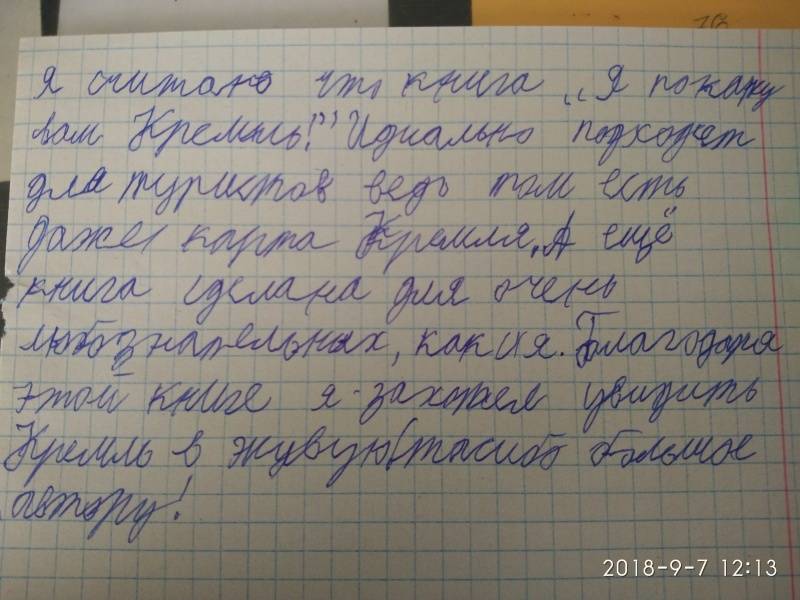 Я считаю что книга „Я покажу
вам Кремль!” Идиально подходет
для туристов ведь там есть
даже карта Кремля, А ещё
книга сделана для очень
любознательных, как я. Благодаря
этой книге я захотел увидить
Кремль в жувую спасибо большое
автору!
2018-9-7 12:13